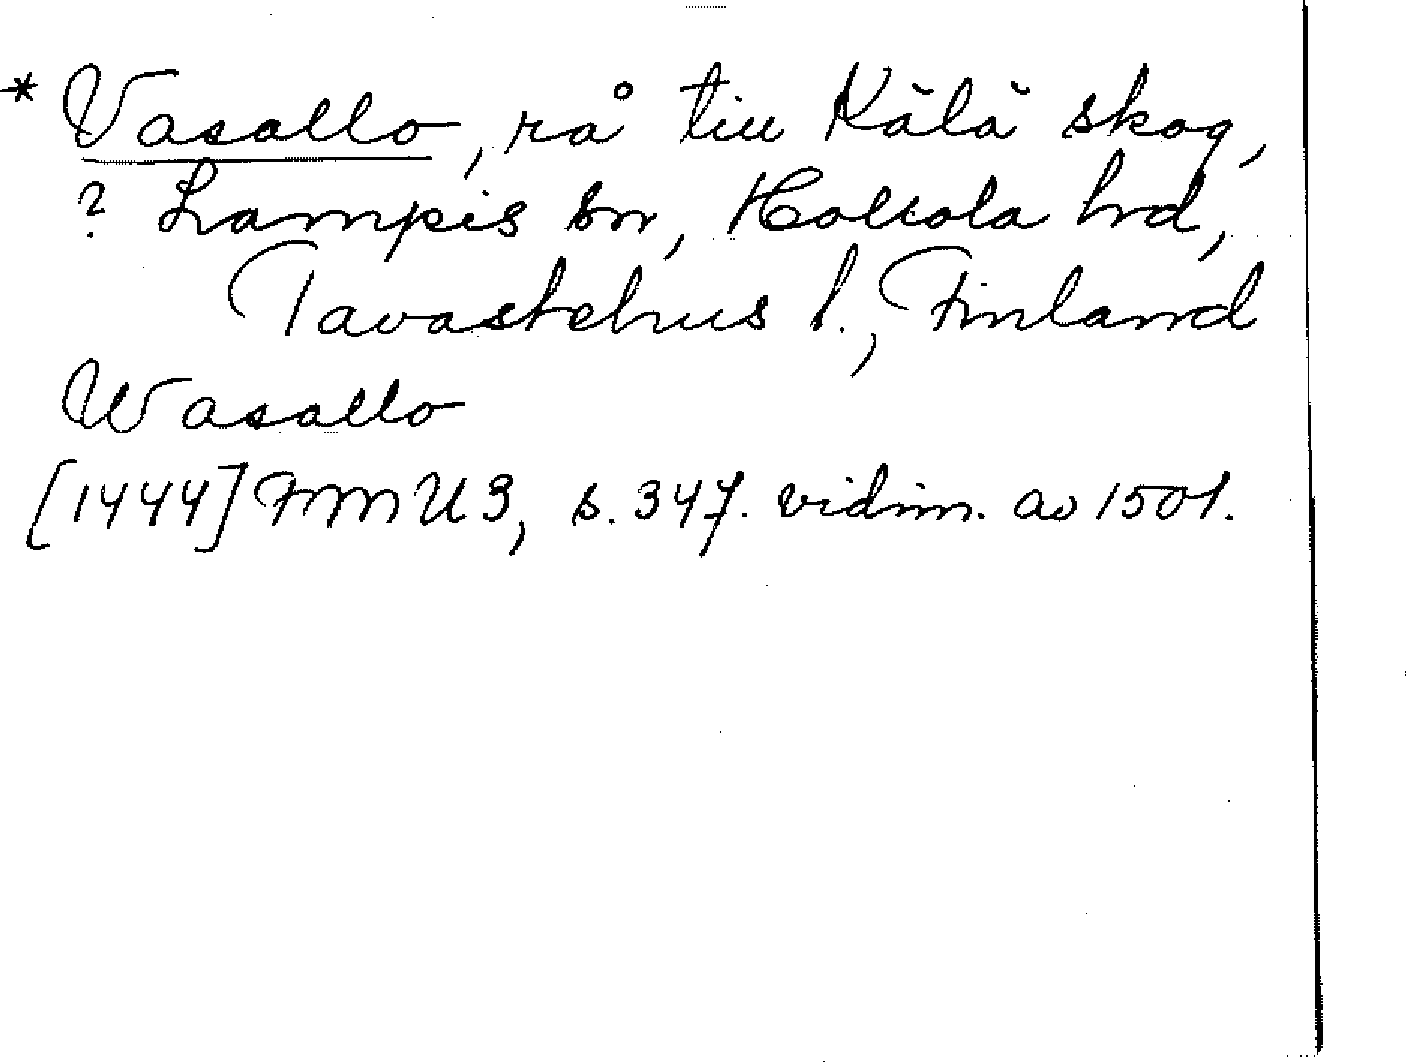 * Vasallo, rå till Kälä skog,
? Lampis sn, Hollola hd,
Tavastehus l., Finland
Wasallo
[1444] FMU 3, s. 347. vidim. av 1501.